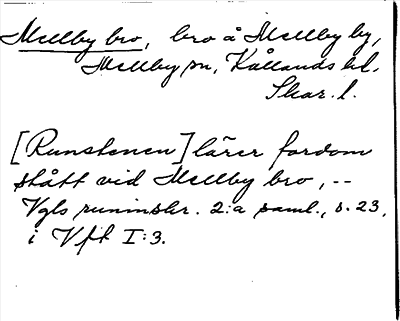 Mellby bro, bro å Mellby by,
Mellby sn, Kållands hd.
Skar. l.
[Runstenen] lärer fordom
stått vid Mellby bro, --
Vgls runinskr. 2:a saml., s. 23,
i Vft I:3.